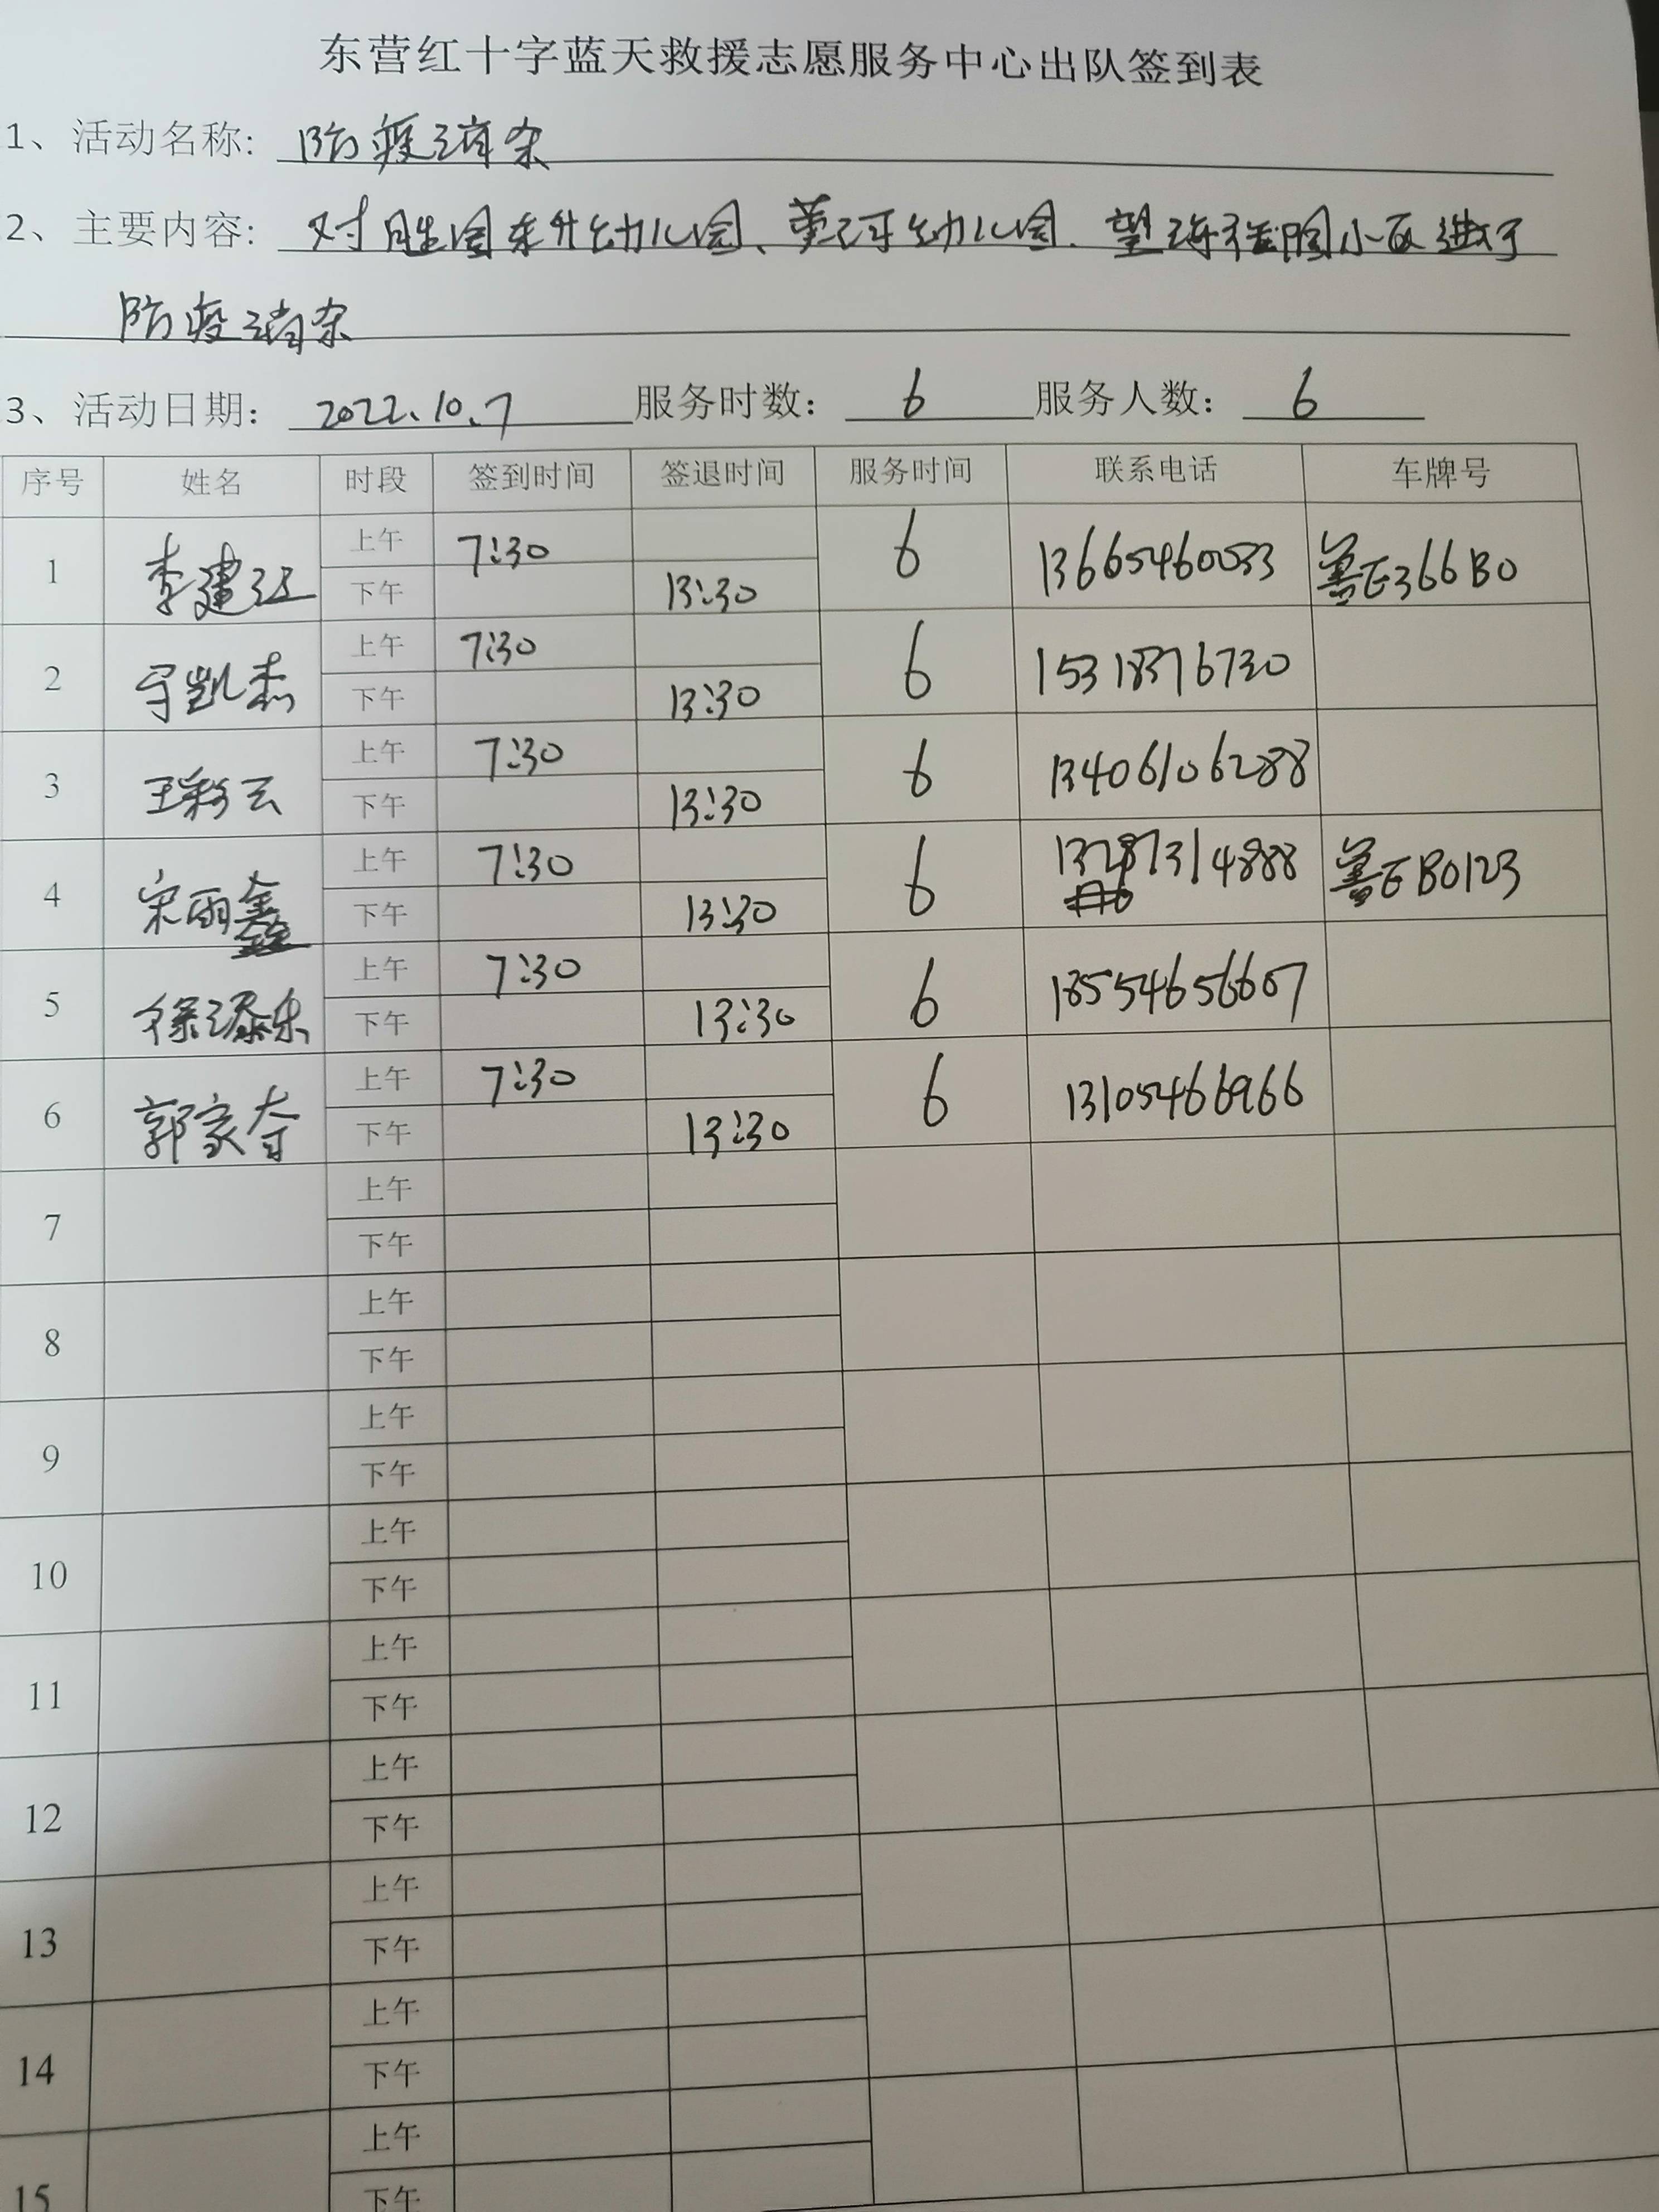 东营红十字蓝天救援志愿服务中心出队签到表
1、活动名称: 防疫消杀
2、主要内容: 对胜园东升幼儿园、黄河幼儿园、望海花园小区进行
防疫消杀
3、活动日期: 2022.10.7 服务时数: 6 服务人数: 6
序号 姓名 时段 签到时间 签退时间 服务时间 联系电话 车牌号
1 李建 上午 7:30 6 13665460033 鲁E366B0
下午 13:30
2 凯杰 上午 7:30 6 15318376730
下午 13:30
3 王彩云 上午 7:30 6 13406106288
下午 13:30
4 宋雨鑫 上午 7:30 6 13287314888 鲁EB0123
下午 13:30
5 徐添乐 上午 7:30 6 18554656607
下午 13:30
6 郭家夺 上午 7:30 6 13105466966
下午 13:30
7 上午
下午
8 上午
下午
9 上午
下午
10 上午
下午
11 上午
下午
12 上午
下午
13 上午
下午
14 上午
下午
15 上午
下午